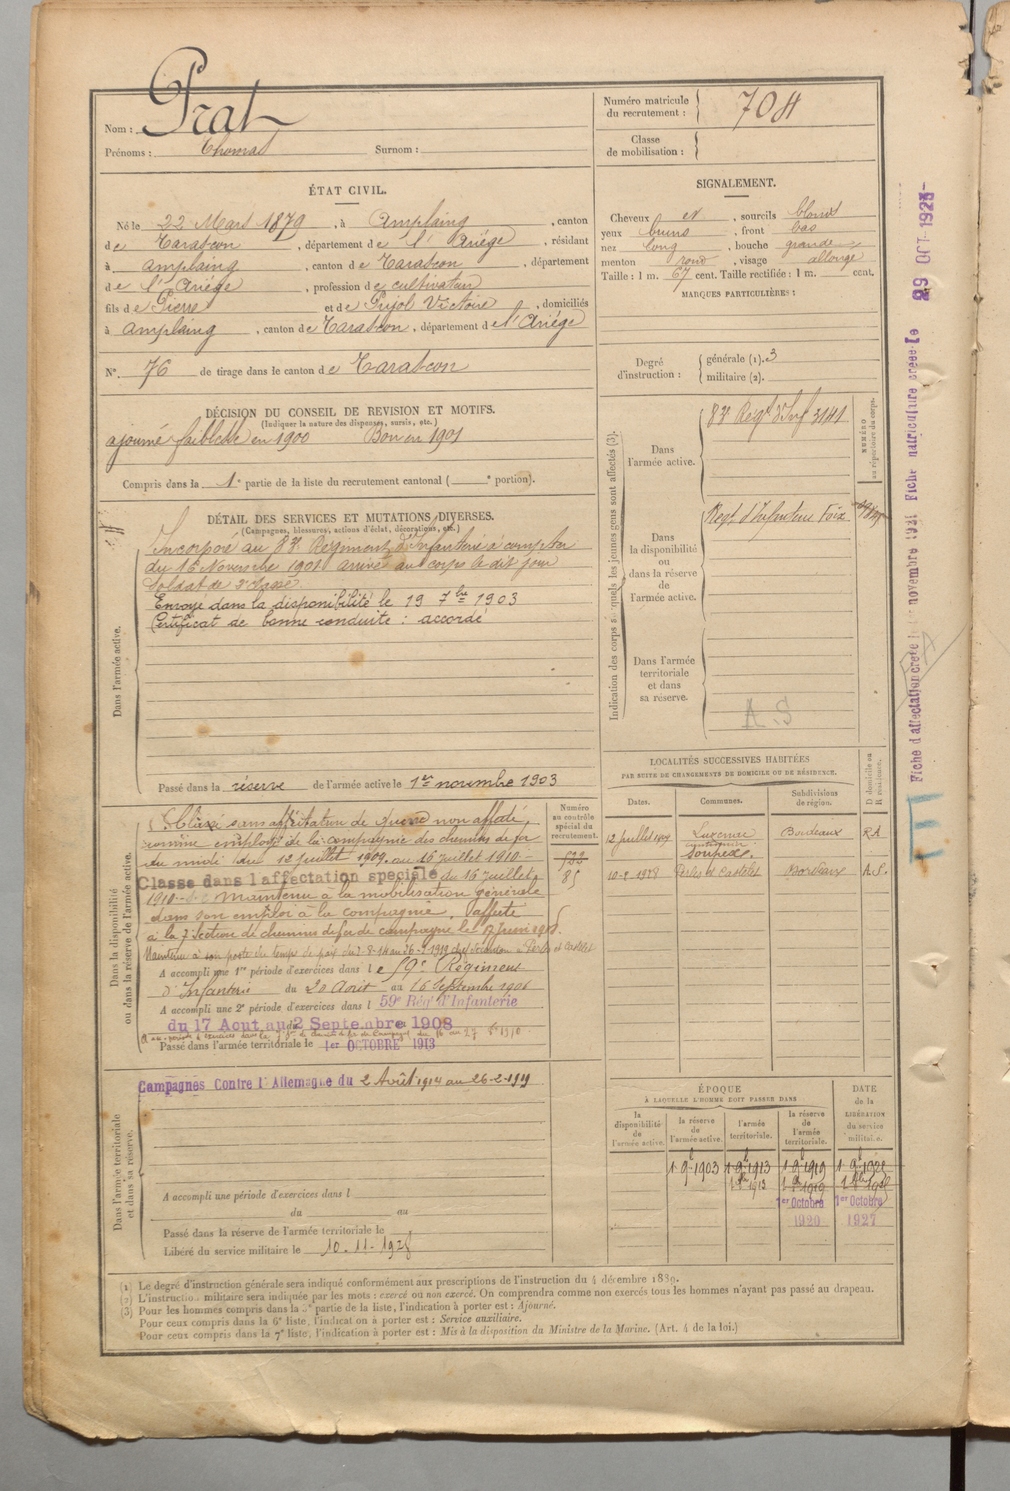 Nom : Prat
Prénoms : Thomas Surnom :
Numéro matricule du recrutement : 704
Classe de mobilisation :
ÉTAT CIVIL.
Né le 22 Mars 1879, à Amplaing, canton
de Tarascon, département de l'Ariège, résidant
à Amplaing, canton de Tarascon, département
de l'Ariège, profession de cultivateur
fils de Pierre et de Pujol Victoire, domiciliés
à Amplaing, canton de Tarascon, département de l'Ariège
N° 76 de tirage dans le canton de Tarascon
SIGNALEMENT.
Cheveux et, sourcils blonds
yeux bruns, front bas
nez long, bouche grande
menton rond, visage allongé
Taille : 1 m. 67 cent. Taille rectifiée : 1 m. cent.
MARQUES PARTICULIÈRES :
Degré d'instruction : générale (1). 3
militaire (2).
DÉCISION DU CONSEIL DE REVISION ET MOTIFS.
(Indiquer la nature des dispenses, sursis, etc.)
ajourné faiblesse en 1900 Bon en 1901
Compris dans la 1e partie de la liste du recrutement cantonal ( e portion).
DÉTAIL DES SERVICES ET MUTATIONS DIVERSES.
(Campagnes, blessures, actions d'éclat, décorations, etc.)
Dans l'armée active.
Incorporé au 83e Régiment d'Infanterie à compter
du 16 Novembre 1901 arrivé au corps le dit jour
Soldat de 2e classe
Envoyé dans la disponibilité le 19 7bre 1903
Certificat de bonne conduite : accordé
Passé dans la réserve de l'armée active le 1er novembre 1903
Indication des corps auxquels les jeunes gens sont affectés (3).
NUMÉRO au répertoire du corps.
Dans l'armée active.
83e Regt d'Inf 3141
Dans la disponibilité ou dans la réserve de l'armée active.
Regt d'Infanterie Foix
Dans l'armée territoriale et dans sa réserve.
A.S
Dans la disponibilité ou dans la réserve de l'armée active.
Numéro au contrôle spécial du recrutement.
Classé sans affectation de guerre non affecté,
comme employé de la compagnie des chemins de fer
du midi du 12 juillet 1909 au 16 juillet 1910
Classé dans l'affectation spéciale du 16 juillet
1910. Maintenu à la mobilisation générale
dans son emploi à la compagnie. affecté
à la 7e section de chemins de fer de campagne le
522
85
A accompli une 1re période d'exercices dans le 59e Régiment
d'Infanterie du 20 Août au 16 Septembre 1906
A accompli une 2e période d'exercices dans l 59e Rég' d'Infanterie
du 17 Aout au 2 Septembre 1908
Passé dans l'armée territoriale le 1er OCTOBRE 1913
LOCALITÉS SUCCESSIVES HABITÉES
PAR SUITE DE CHANGEMENTS DE DOMICILE OU DE RÉSIDENCE.
Dates. Communes. Subdivisions de région. D domicile ou R résidence.
12 Juillet 1909 Luzenac Bordeaux R.A
10-2-1928 Perles et Castelet Bordeaux A.S.
Dans l'armée territoriale et dans sa réserve.
Campagnes Contre l'Allemagne du 2 Août 1914 au 26-2-1919
A accompli une période d'exercices dans l
du au
Passé dans la réserve de l'armée territoriale le
Libéré du service militaire le 10-11-1928
ÉPOQUE
À LAQUELLE L'HOMME DOIT PASSER DANS
la disponibilité de l'armée active.
la réserve de l'armée active.
l'armée territoriale.
la réserve de l'armée territoriale.
DATE de la LIBÉRATION du service militaire.
1-9-1903 1-9-1913 1-9-1919
1er Octobre 1920 1er Octobre 1927
Fiche d'affectation créée le novembre 1921 Fiche matriculaire créée le 29 OCT 1925
(1) Le degré d'instruction générale sera indiqué conformément aux prescriptions de l'instruction du 4 décembre 1889.
(2) L'instruction militaire sera indiquée par les mots : exercé ou non exercé. On comprendra comme non exercés tous les hommes n'ayant pas passé au drapeau.
(3) Pour les hommes compris dans la 5e partie de la liste, l'indication à porter est : Ajourné.
Pour ceux compris dans la 6e liste, l'indication à porter est : Service auxiliaire.
Pour ceux compris dans la 7e liste, l'indication à porter est : Mis à la disposition du Ministre de la Marine. (Art. 4 de la loi.)